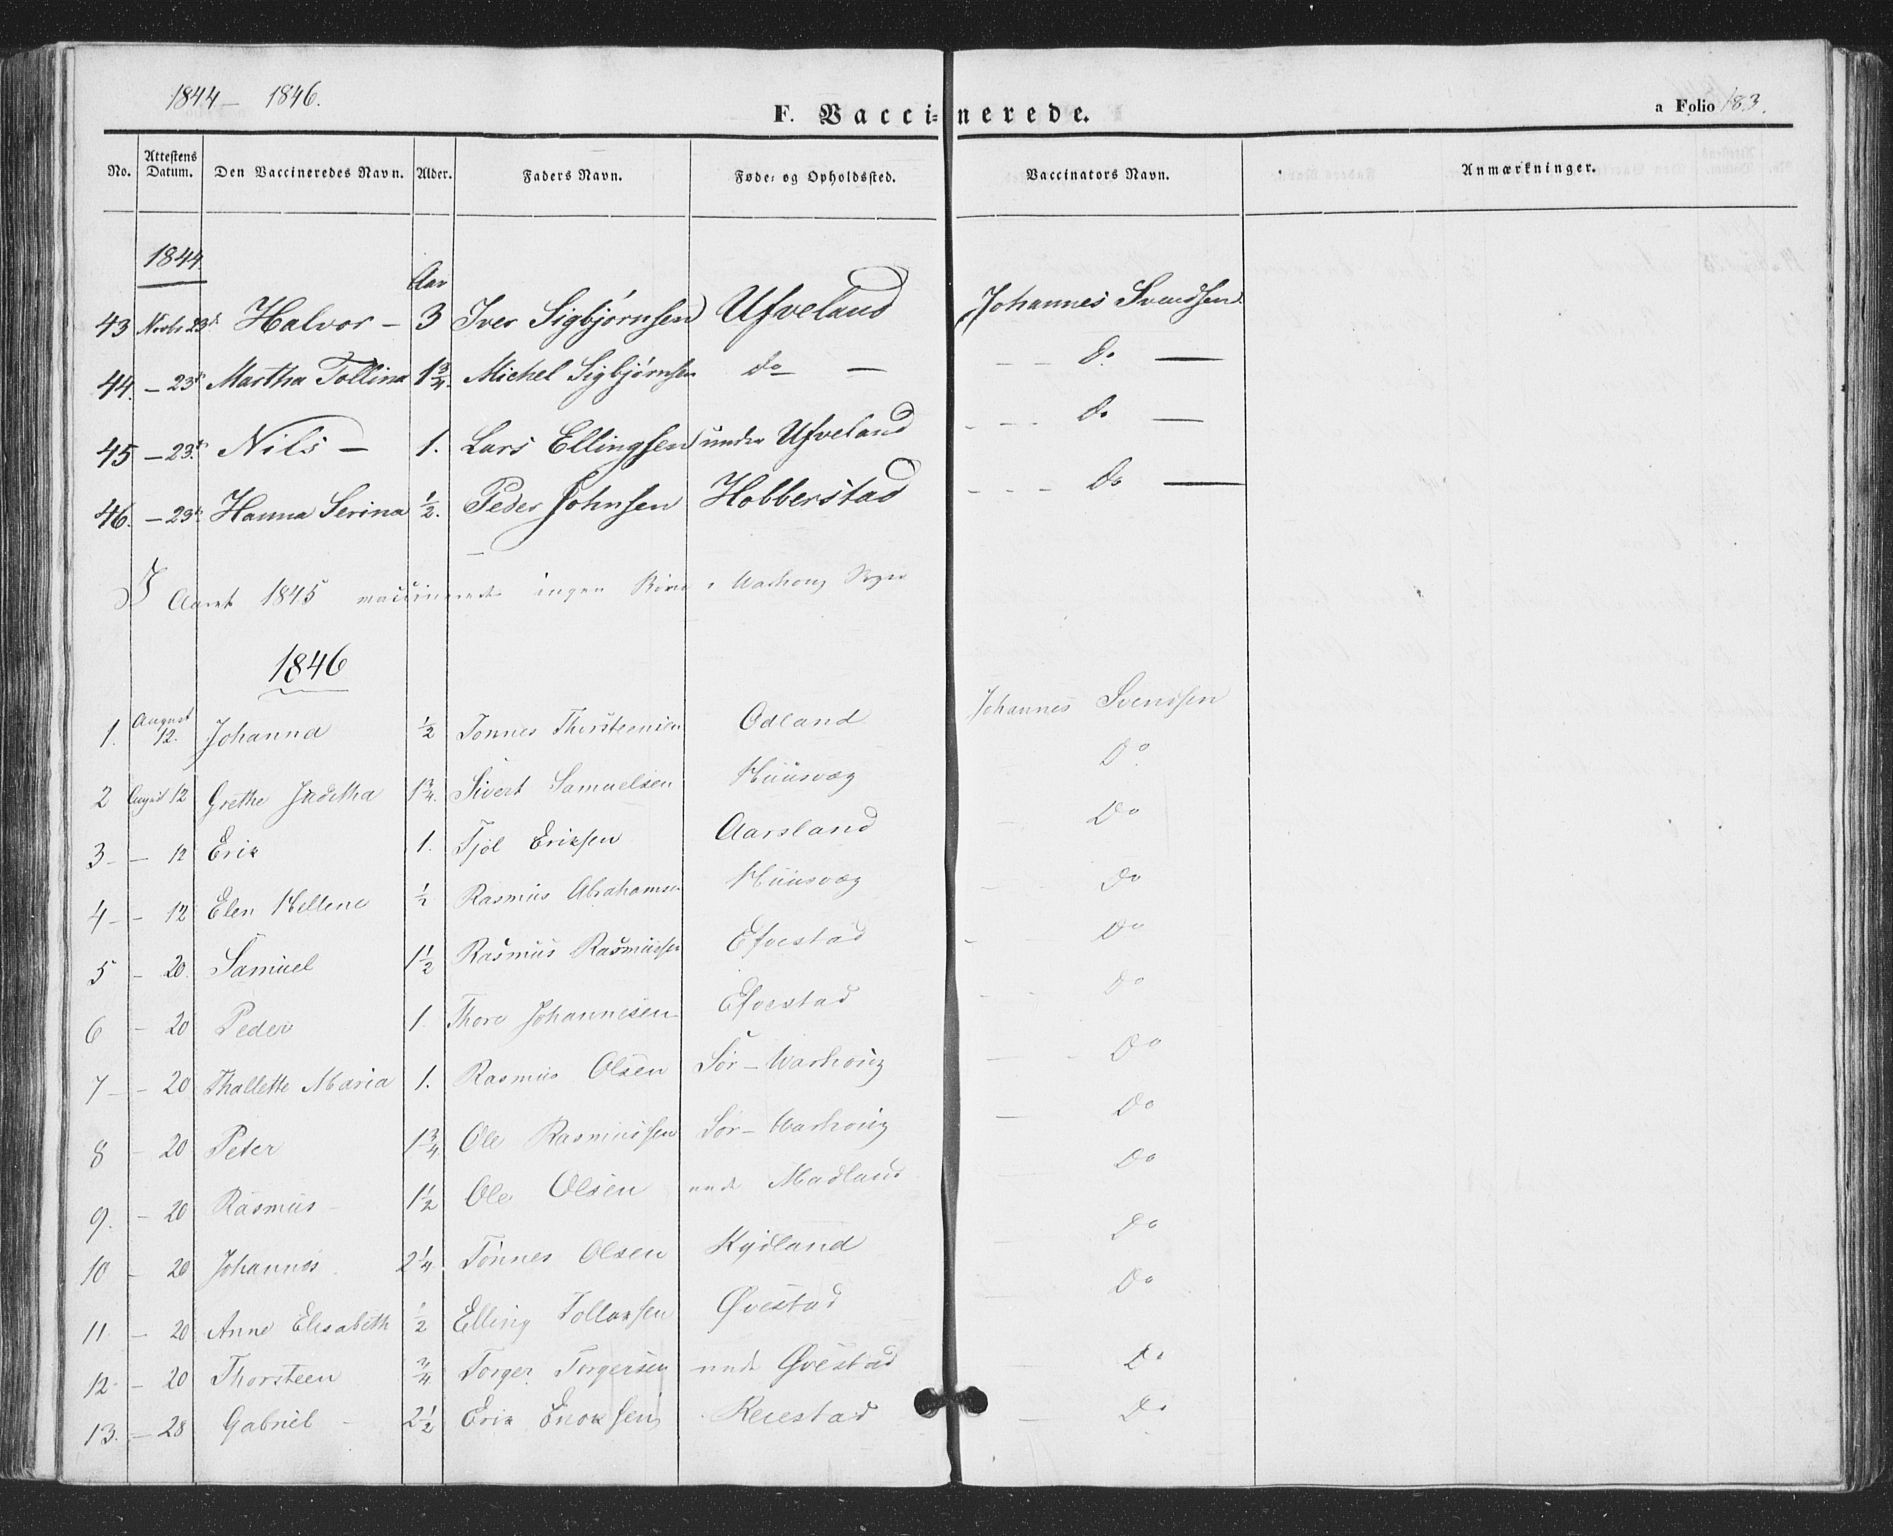 1844 – 1846.
F. Vaccinerede.
a Folio 183.
No. Attestens Datum. Den Vaccineredes Navn. Alder. Faders Navn. Føde- og Opholdssted. Vaccinators Navn. Anmærkninger.
1844
Aar
43 Novbr 23d Halvor – 3 Iver Sigbjørnsen Ufveland Johannes Svendsen
44. – 23d Martha Tollina 1 3/4. Michel Sigbjørnsen do – – – Do —
45 – 23d. Nils – 1. Lars Ellingsen under Ufveland – – – Do —
46. – 23d. Hanna Serina 1/2. Peder Johnsen Hobberstad – – – Do —
I Aaret 1845 vaccineredes ingen Børn i Warhoug Sogn
1846
1. August 12. Johanna 1/2 Tønnes Thorsteensen Odland Johannes Svensen
2 August 12 Grethe Juditha 1 3/4. Sivert Samuelsen Huusvæg – Do.
3 – – 12 Erik 1. Tjøl Eriksen Aarsland – Do
4 – – 12 Elen Hellene 1/2 Rasmus Abrahamsen Huusvæg – Do
5 – 20. Samuel 1 1/2 Rasmus Rasmussen Efvestad – Do
6 – 20 Peder 1. Thore Johannesen Efvestad – – Do
7 – – 20 Thallette Maria 1. Rasmus Olsen Sør – Warhoug – – Do
8 – 20 Peter 1 3/4 Ole Rasmussen Sør – Warhoug – Do
9. – 20 Rasmus – 1 1/2 Ole Olsen unde Madland – Do
10 – 20 Johannes 2 1/4 Tønnes Olsen Kydland – Do
11 – 20 Anne Elisabeth 1/2 Elling Tollaksen Øvestad Do
12 – – 20 Thorsteen 3/4 Torger Torgersen unde Øvestad – Do
13. – 28 Gabriel – 2 1/2 Erik Enoksen Reiestad – Do